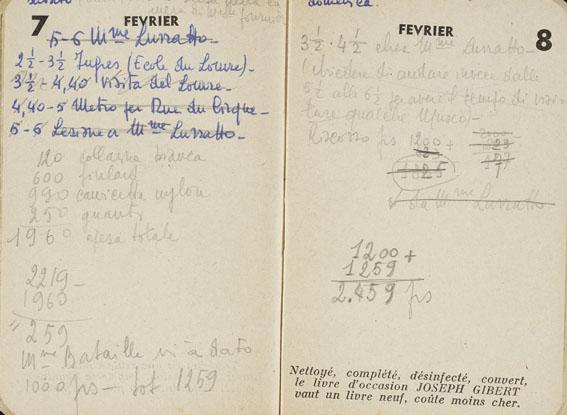 7 FEVRIER
5-6 Mme Lussatto
2½-3½ Ingres (Ecole du Louvre)-
3½-4,40 visita del Louvre-
4,40-5 Metro per Rue du Cirque-
5-6 Lezione a Mme Lussatto-
120 collarino bianco
600 foulard
990 camicetta nylon
250 guanti
1960 spesa totale
2219-
1960
259
Mme Bataille mi à dato
1000 frs - tot. 1259
domenica.
FEVRIER 8
3½-4½ chez Mme Lussatto-
(chiedere di andare invece dalle
5½ alle 6½ per avere il tempo di
qualche Museo)-
Riscosso frs 1200+
1825
177
da Mme Lussatto
1200+
1259
2.459 frs
Nettoyé, complété, désinfecté, couvert,
le livre d'occasion JOSEPH GIBERT
vaut un livre neuf, coûte moins cher.